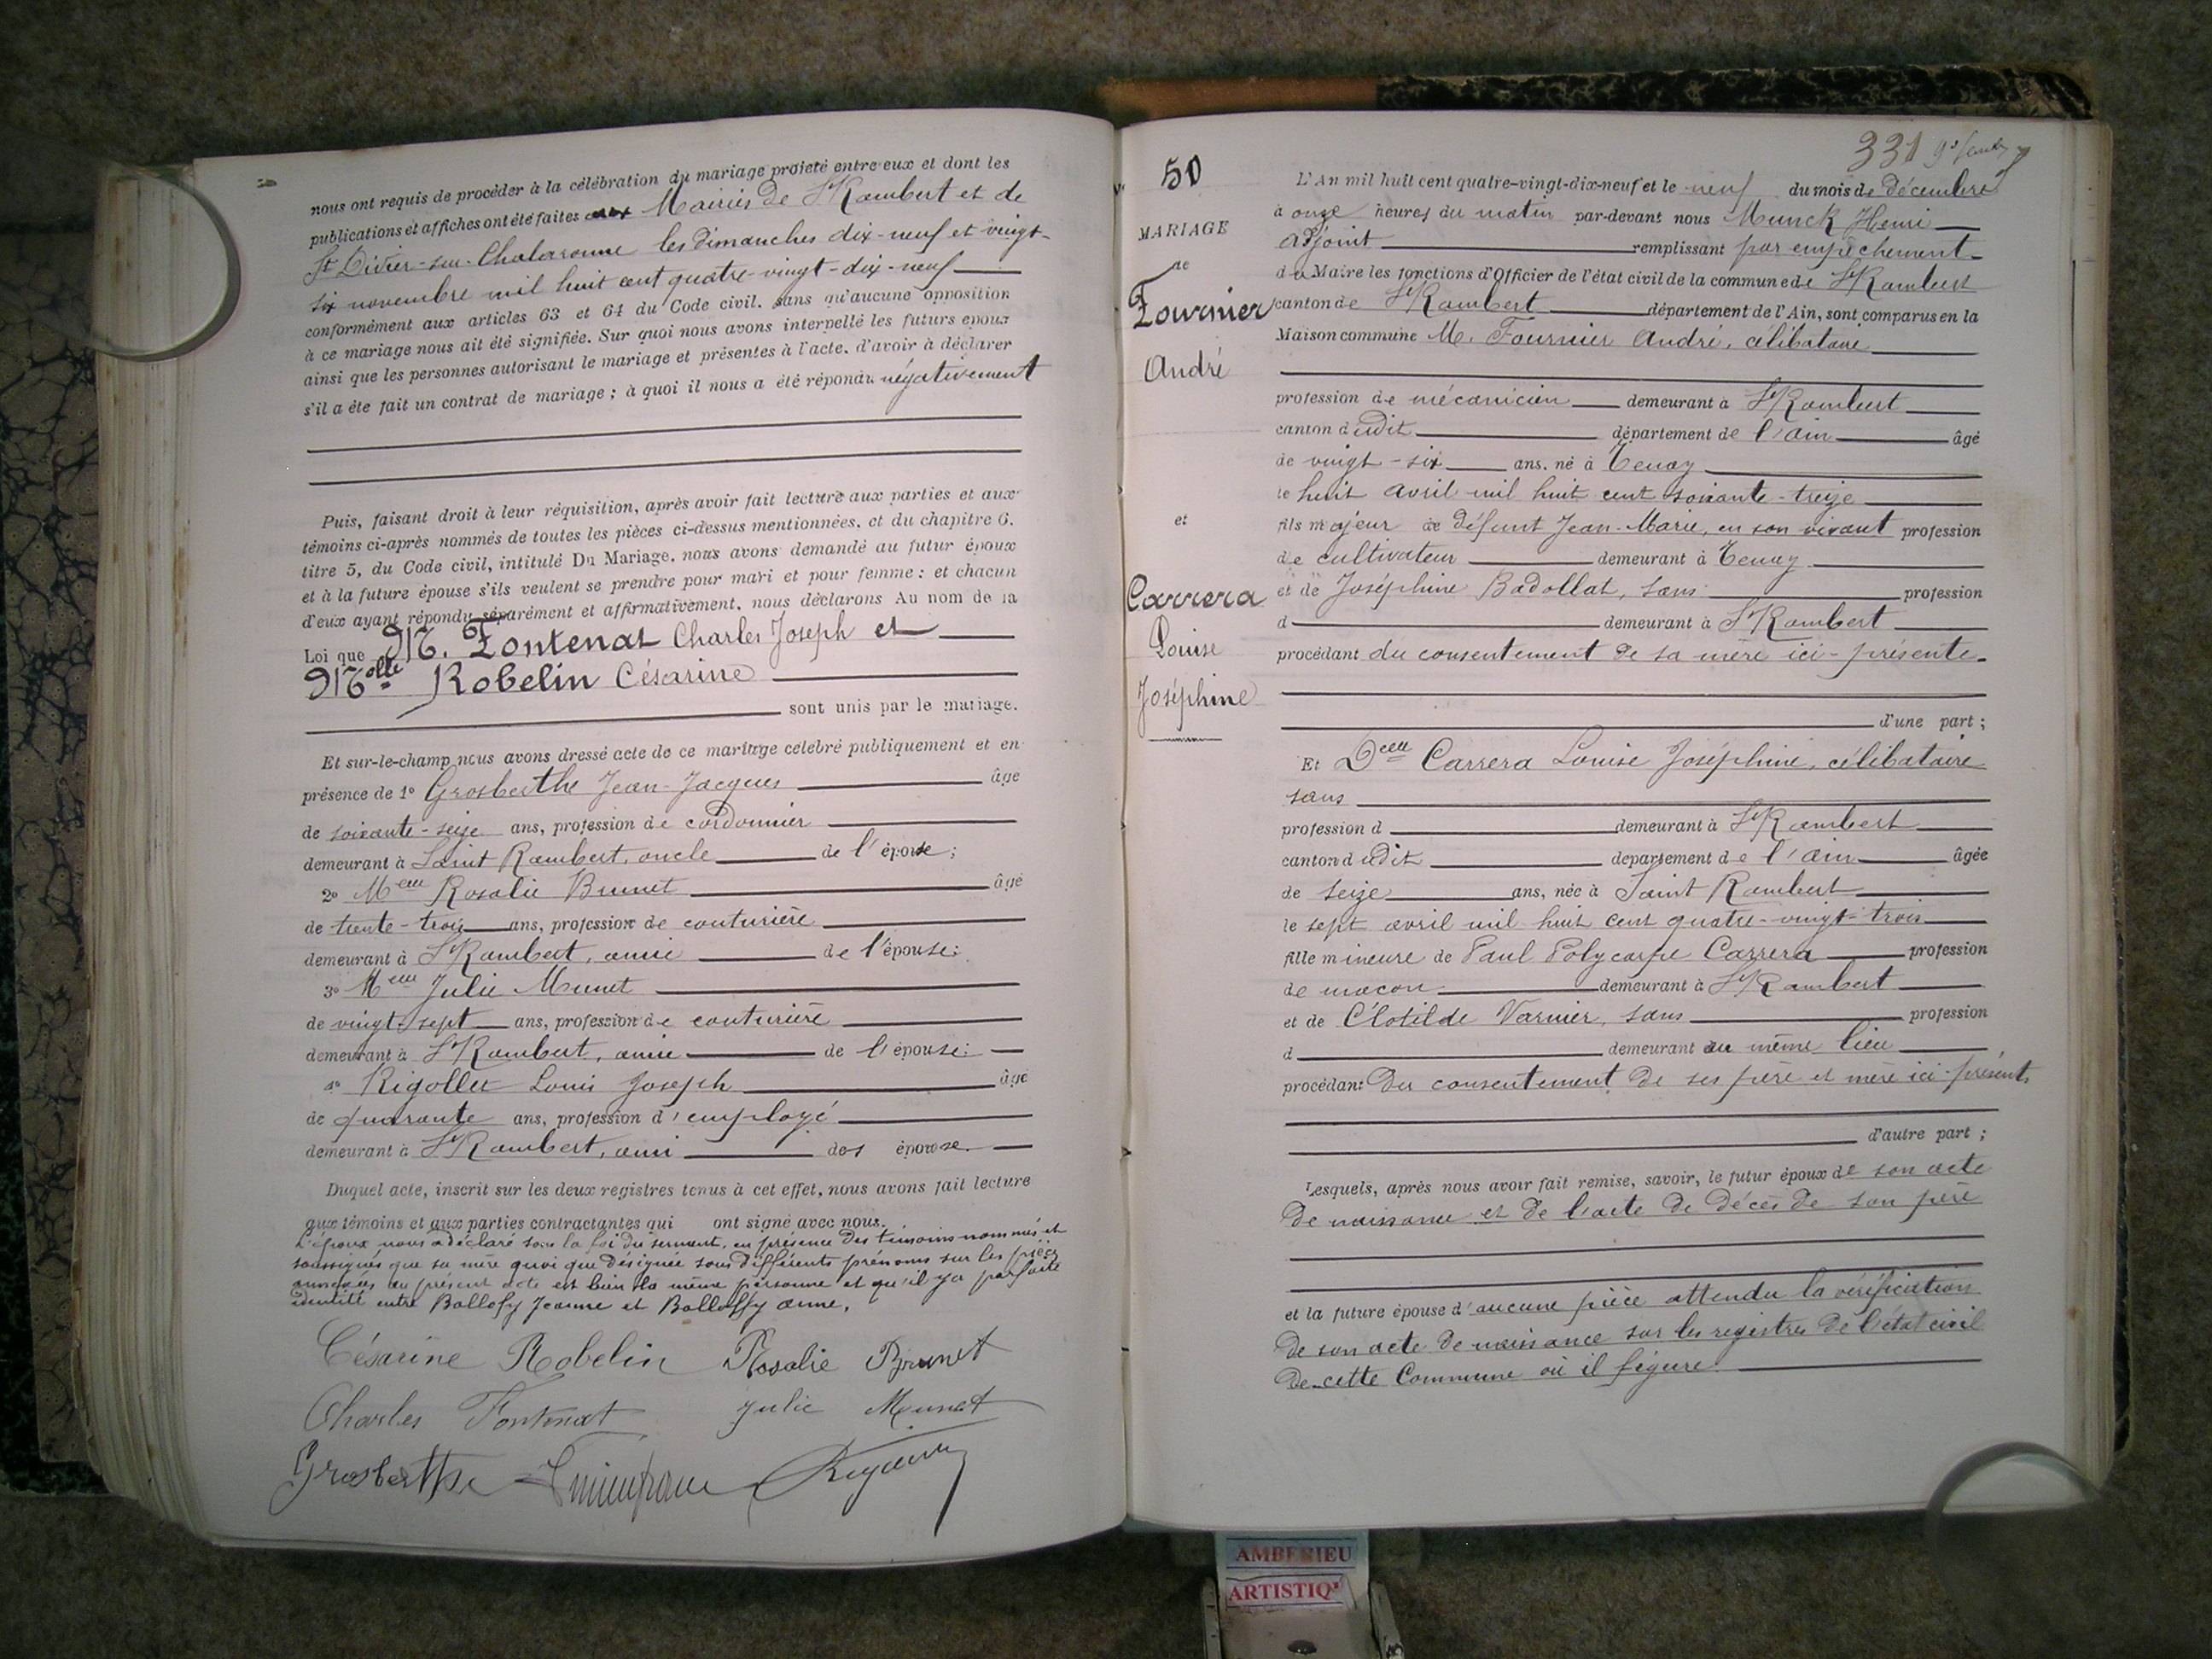 nous ont requis de procéder à la célébration du mariage projeté entre eux et dont les
publications et affiches ont été faites aux Mairies de St Rambert et de
St Didier-sur-Chalaronne les dimanches dix-neuf et vingt-
six novembre mil huit cent quatre-vingt-dix-neuf
conformément aux articles 63 et 64 du Code civil, sans qu'aucune opposition
à ce mariage nous ait été signifiée. Sur quoi nous avons interpellé les futurs époux
ainsi que les personnes autorisant le mariage et présentes à l'acte, d'avoir à déclarer
s'il a été fait un contrat de mariage ; à quoi il nous a été répondu négativement
Puis, faisant droit à leur réquisition, après avoir fait lecture aux parties et aux
témoins ci-après nommés de toutes les pièces ci-dessus mentionnées, et du chapitre 6,
titre 5, du Code civil, intitulé Du Mariage, nous avons demandé au futur époux
et à la future épouse s'ils veulent se prendre pour mari et pour femme : et chacun
d'eux ayant répondu séparément et affirmativement, nous déclarons Au nom de la
Loi que M. Fontenat Charles Joseph et
Melle Robelin Césarine
sont unis par le mariage.
Et sur-le-champ nous avons dressé acte de ce mariage célébré publiquement et en
présence de 1° Grosberthe Jean-Jacques âgé
de soixante-seize ans, profession de cordonnier
demeurant à Saint Rambert, oncle de l'épouse ;
2° Melle Rosalie Brunet âgé
de trente-trois ans, profession de couturière
demeurant à St Rambert, amie de l'épouse ;
3° Melle Julie Munet
de vingt-sept ans, profession de couturière
demeurant à St Rambert, amie de l'épouse ;
4° Rigollet Louis Joseph âgé
de quarante ans, profession d'employé
demeurant à St Rambert, ami des épouse.
Duquel acte, inscrit sur les deux registres tenus à cet effet, nous avons fait lecture
aux témoins et aux parties contractantes qui ont signé avec nous.
L'époux nous a déclaré sous la foi du serment, en présence des témoins nommés et
soussignés que sa mère quoi que désignée sous différents prénoms sur les pièces
annexées au présent acte est bien la même personne et qu'il y a parfaite
identité entre Ballofy Jeanne et Balloffy Anne.
Césarine Robelin Rosalie Brunet
Charles Fontenat Julie Munet
Grosberthe
50
MARIAGE
de
Fournier
André
et
Carrera
Louise
Joséphine
331
L'An mil huit cent quatre-vingt-dix-neuf et le neuf du mois de décembre
à onze heures du matin par-devant nous Munck Henri
adjoint remplissant par empêchement
du Maire les fonctions d'Officier de l'état civil de la commune de St Rambert
canton de St Rambert département de l'Ain, sont comparus en la
Maison commune M. Fournier André, célibataire
profession de mécanicien demeurant à St Rambert
canton dudit département de l'Ain âgé
de vingt-six ans, né à Tenay
le huit avril mil huit cent soixante-treize
fils majeur de défunt Jean-Marie, en son vivant profession
de cultivateur demeurant à Tenay
et de Joséphine Badollat, sans profession
d demeurant à St Rambert
procédant du consentement de sa mère ici-présente
d'une part ;
Et Delle Carrera Louise Joséphine, célibataire
sans
profession d demeurant à St Rambert
canton dudit département de l'Ain âgée
de seize ans, née à Saint Rambert
le sept avril mil huit cent quatre-vingt-trois
fille mineure de Paul Polycarpe Carrera profession
de maçon demeurant à St Rambert
et de Clotilde Varnier, sans profession
d demeurant au même lieu
procédant du consentement de ses père et mère ici-présents
d'autre part ;
Lesquels, après nous avoir fait remise, savoir, le futur époux de son acte
de naissance et de l'acte de décès de son père
et la future épouse d'aucune pièce attendu la vérification
de son acte de naissance sur les registres de l'état civil
de cette Commune où il figure.
AMBERIEU
ARTISTIQ